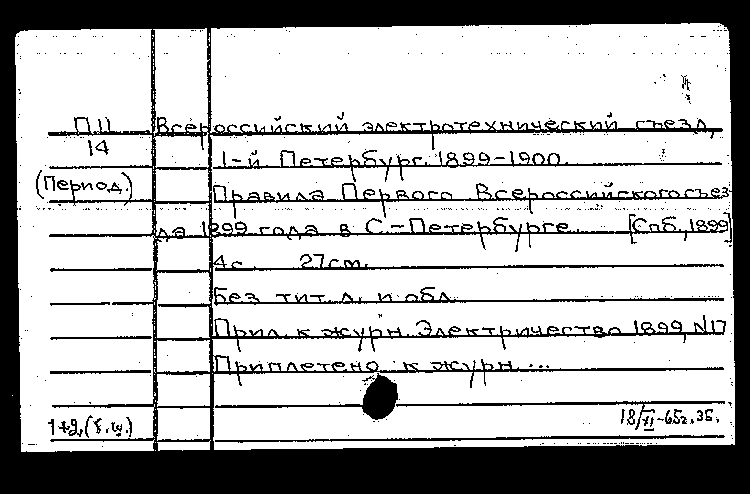 П.11 Всероссийский электротехнический съезд,
14 1-й Петербург. 1899-1900.
(Период.) Правила Первого Всероссийского съез
да 1899 года в С-Петербурге. [Спб., 1899]
4с. 27см.
Без тит. л. и обл.
Прил. к журн. Электричество 1899, N17
Приплетено к журн. ...
18/XI-65г. 35.